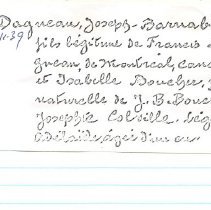 Dagneau, Joseph-Barnab
11-39 fils légitime de Francis
gneau, de Montréal, Can
et Isabelle Boucher,
naturelle de J. B. Bouc
Josephte Colville.
âgé d'un an